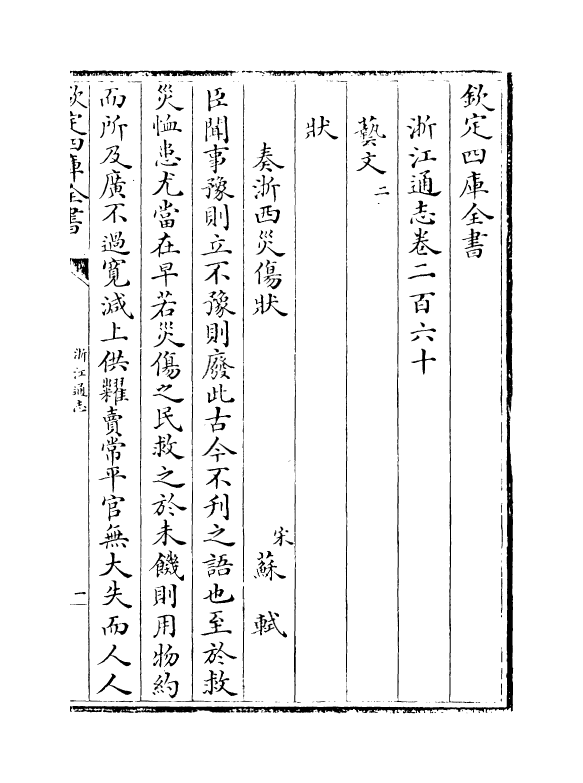 欽定四庫全書
浙江通志卷二百六十
藝文二
狀
奏浙西災傷狀
宋蘇軾
臣聞事豫則立不豫則廢此古今不刋之語也至於救
災恤患尤當在早若災傷之民救之於未饑則用物約
而所及廣不過寬減上供糶賣常平官無大失而人人
欽定四庫全書
浙江通志